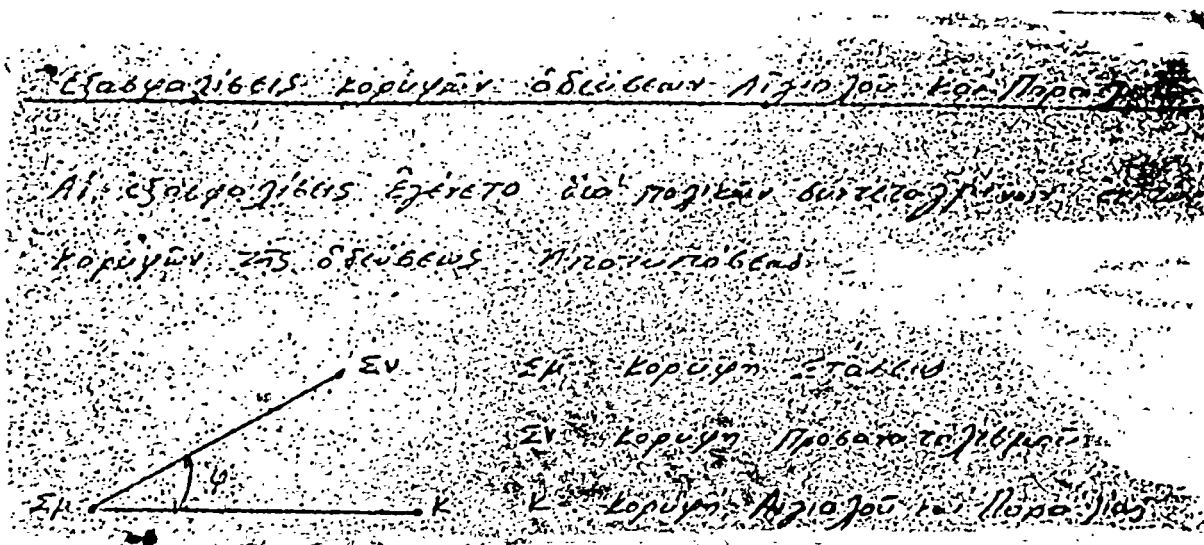 Ἐξασφαλίσεις κορυφῶν ὁδεύσεων Αἰγιαλοῦ καὶ
Αἱ ἐξασφαλίσεις ἐγένετο διὰ πολικῶν συντεταγμένων
κορυφῶν τῆς ὁδεύσεως Ἀποτυπώσεως
Σν
φ
Σμ Κ
Σμ κορυφὴ Στάσεως
Σν κορυφὴ Προσανατολισμοῦ
Κ κορυφὴ Αἰγιαλοῦ καὶ Παραλίας